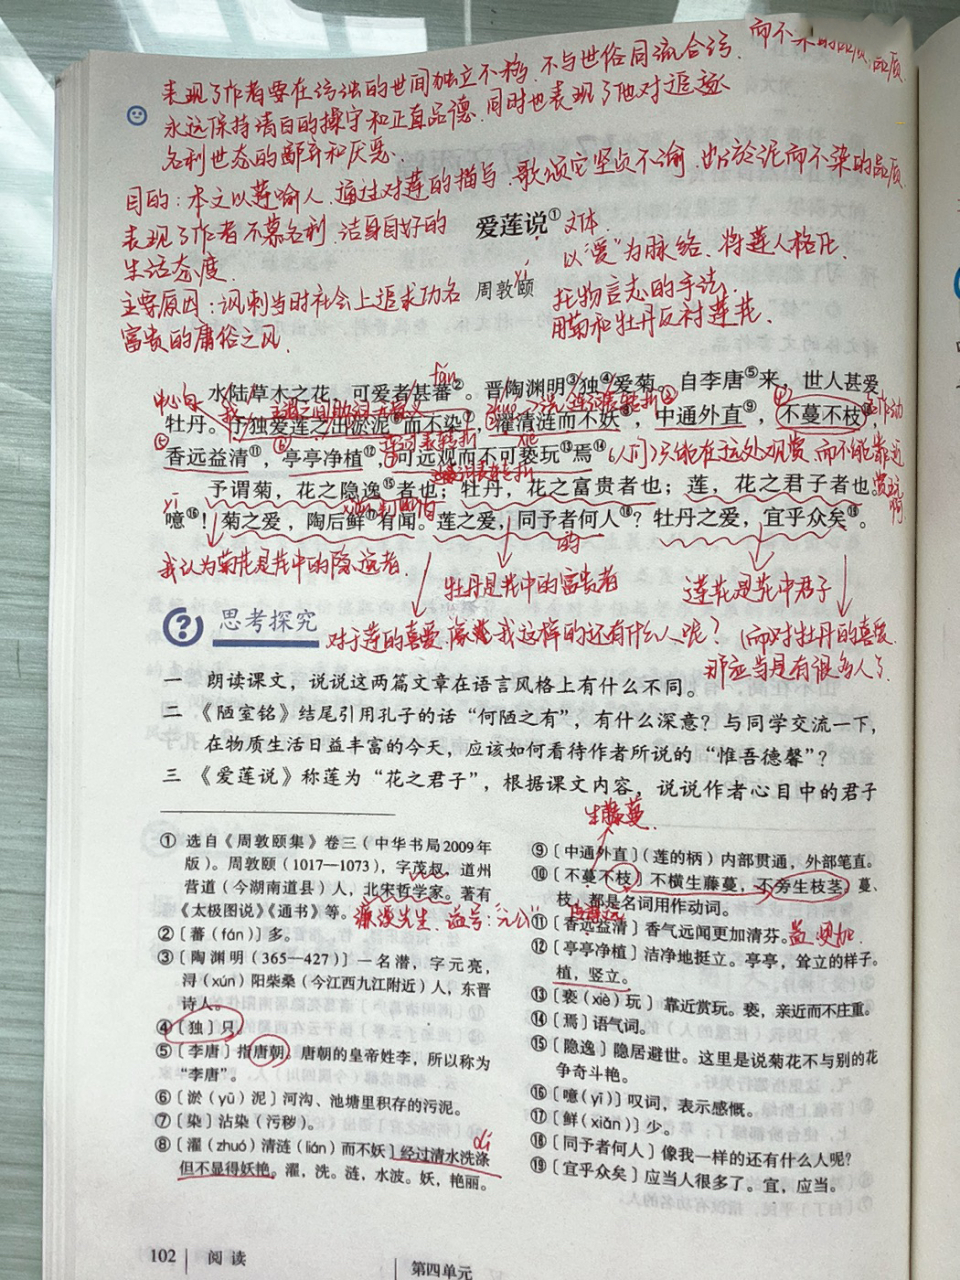 而不染的品质
表现了作者要在污浊的世间独立不移、不与世俗同流合污、
永远保持清白的操守和正直品德、同时也表现了他对追逐
名利世态的鄙弃和厌恶、
目的：本文以莲喻人、通过对莲的描写、歌颂它坚贞不渝、出於泥而不染的品质
表现了作者不慕名利、洁身自好的
生活态度、
主要原因：讽刺当时社会上追求功名
富贵的庸俗之风、
爱莲说① 文体、
以“爱”为脉络、将莲人格化
周敦颐
托物言志的手法、
用菊和牡丹反衬莲花、
fán
水陆草木之花，可爱者甚蕃②。晋陶渊明③独④爱菊。自李唐⑤来，世人甚爱
中心句
牡丹。予独爱莲之出淤泥⑥而不染⑦，濯清涟而不妖⑧，中通外直⑨，不蔓不枝⑩，
香远益清⑪，亭亭净植⑫，可远观而不可亵玩⑬焉⑭。
人们只能在远处观赏、而不能靠近
赏玩啊
予谓菊，花之隐逸⑮者也；牡丹，花之富贵者也；莲，花之君子者也。
yī
噫⑯！菊之爱，陶后鲜⑰有闻。莲之爱，同予者何人⑱？牡丹之爱，宜乎众矣⑲。
的
我认为菊花是花中的隐逸者
牡丹是花中的富贵者
莲花是花中君子
思考探究
对于莲的喜爱、像我这样的还有什么人呢？
而对牡丹的喜爱
那应当是有很多人了
一 朗读课文，说说这两篇文章在语言风格上有什么不同。
二 《陋室铭》结尾引用孔子的话“何陋之有”，有什么深意？与同学交流一下，
在物质生活日益丰富的今天，应该如何看待作者所说的“惟吾德馨”？
三 《爱莲说》称莲为“花之君子”，根据课文内容，说说作者心目中的君子
① 选自《周敦颐集》卷三（中华书局2009年
版）。周敦颐（1017—1073），字茂叔，道州
营道（今湖南道县）人，北宋哲学家。著有
《太极图说》《通书》等。
濂溪先生、谥号：“元公”
②〔蕃（fán）〕多。
③〔陶渊明（365—427）〕一名潜，字元亮，
浔（xún）阳柴桑（今江西九江附近）人，东晋
诗人。
④〔独〕只。
⑤〔李唐〕指唐朝。唐朝的皇帝姓李，所以称为
“李唐”。
⑥〔淤（yū）泥〕河沟、池塘里积存的污泥。
⑦〔染〕沾染（污秽）。
⑧〔濯（zhuó）清涟（lián）而不妖〕经过清水洗涤
dí
但不显得妖艳。濯，洗。涟，水波。妖，艳丽。
生藤蔓、
⑨〔中通外直〕（莲的柄）内部贯通，外部笔直。
⑩〔不蔓不枝〕不横生藤蔓，不旁生枝茎。蔓、
枝，都是名词用作动词。
⑪〔香远益清〕香气远闻更加清芬。
益 更加、
⑫〔亭亭净植〕洁净地挺立。亭亭，耸立的样子。
植，竖立。
⑬〔亵（xiè）玩〕靠近赏玩。亵，亲近而不庄重。
⑭〔焉〕语气词。
⑮〔隐逸〕隐居避世。这里是说菊花不与别的花
争奇斗艳。
⑯〔噫（yī）〕叹词，表示感慨。
⑰〔鲜（xiǎn）〕少。
⑱〔同予者何人〕像我一样的还有什么人呢？
⑲〔宜乎众矣〕应当人很多了。宜，应当。
102 阅读
第四单元